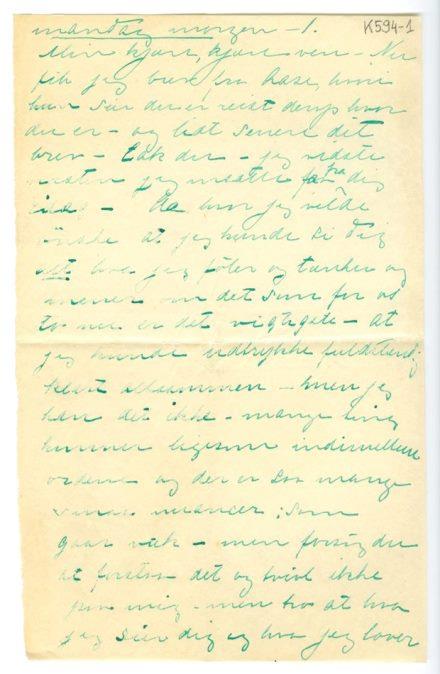 mandag morgen – 1. K594-1
Min kjære, kjære ven – Nu
fik jeg brev fra Aase, hvori
hun sier du er reist derop hvor
du er – og lidt senere dit
brev – tak du – jeg vidste
næsten jeg maatte fra dig
idag – Aa hvor jeg vilde
ønske at jeg kunde si dig
alt hva jeg føler og tænker og
mener om det som for os
to nu er det vigtigste – at
jeg kunde udtrykke fuldstændig
klart altsammen – men jeg
kan det ikke – mange ting
kommer ligesom indimellem
ordene og der er saa mange
smaa nuancer, som
gaar væk – men forsøg du
at forstaa det og tvivl ikke
paa mig – men tro at hva
jeg sier dig og hva jeg lover